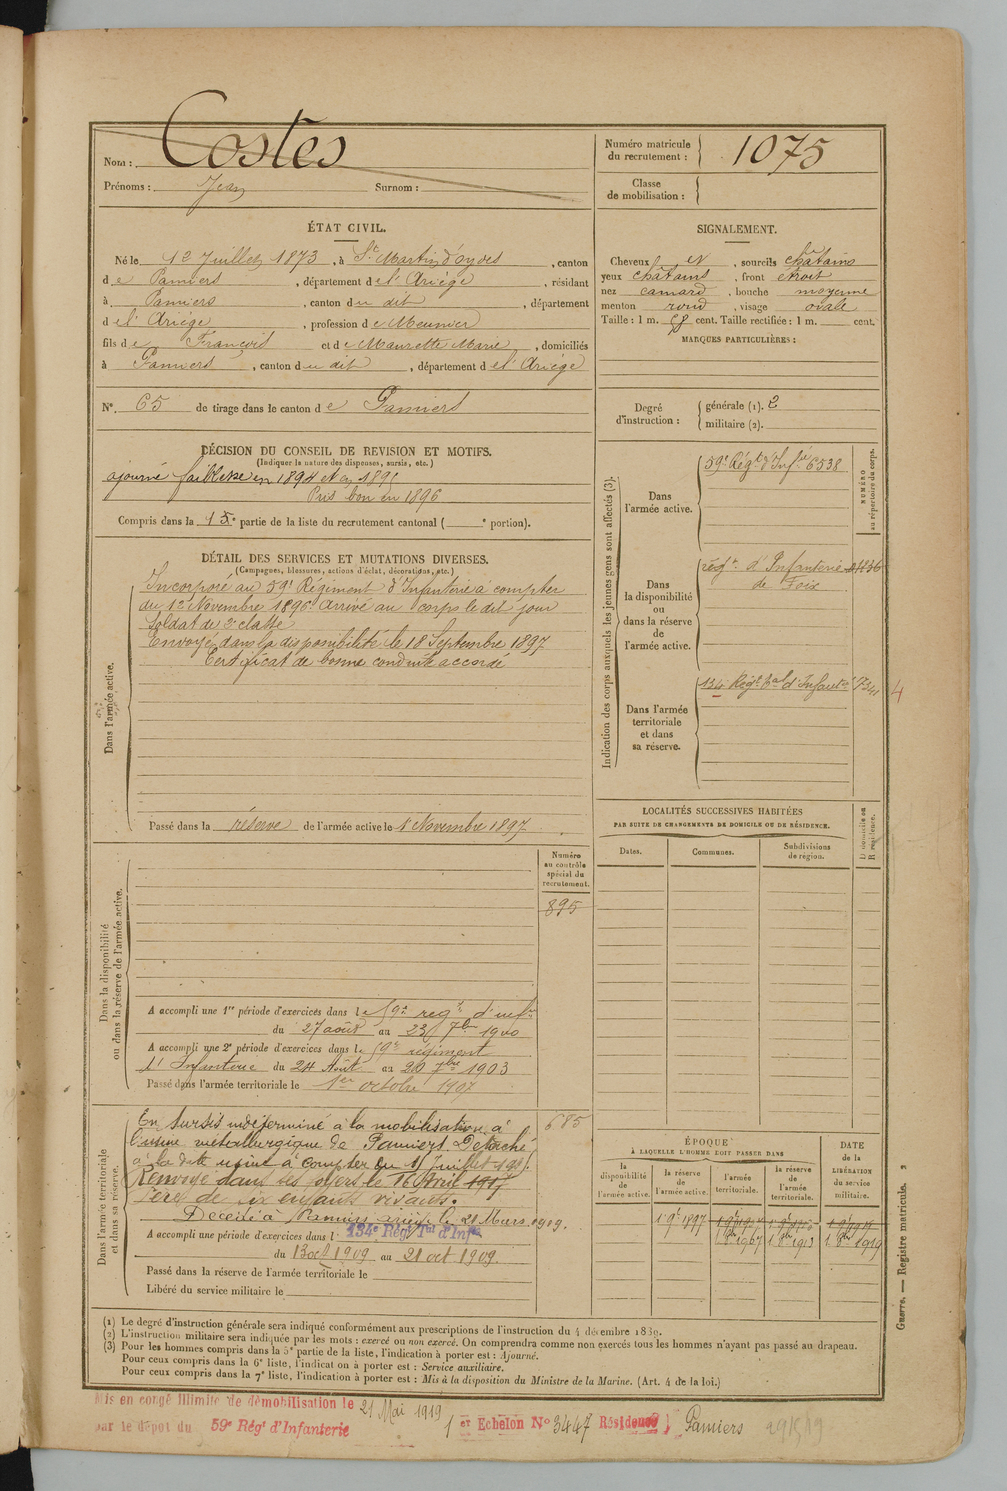 Nom : Costes
Prénoms : Jean Surnom :
Numéro matricule du recrutement : 1075
Classe de mobilisation :
ÉTAT CIVIL.
Né le 12 Juillet 1873, à St Martin d'oydes, canton
de Pamiers, département de l'Ariège, résidant
à Pamiers, canton du dit, département
de l'Ariège, profession de Meunier
fils de François et de Maurette Marie, domiciliés
à Pamiers, canton du dit, département de l'Ariège
N° 65 de tirage dans le canton de Pamiers
SIGNALEMENT.
Cheveux et, sourcils châtains
yeux châtains, front étroit
nez camard, bouche moyenne
menton rond, visage ovale
Taille : 1 m. 58 cent. Taille rectifiée : 1 m. cent.
MARQUES PARTICULIÈRES :
Degré d'instruction : générale (1). 2
militaire (2).
DÉCISION DU CONSEIL DE REVISION ET MOTIFS.
(Indiquer la nature des dispenses, sursis, etc.)
ajourné faiblesse en 1894 et en 1895
Pris bon en 1896
Compris dans la 15e partie de la liste du recrutement cantonal ( e portion).
DÉTAIL DES SERVICES ET MUTATIONS DIVERSES.
(Campagnes, blessures, actions d'éclat, décorations, etc.)
Dans l'armée active.
Incorporé au 59e Régiment d'Infanterie à compter
du 12 Novembre 1896. Arrivé au corps le dit jour
Soldat de 2e classe
Envoyé dans la disponibilité le 18 Septembre 1897
Certificat de bonne conduite accordé
Passé dans la réserve de l'armée active le 1 Novembre 1897
Indication des corps auxquels les jeunes gens sont affectés (3).
NUMÉRO au répertoire du corps.
Dans l'armée active.
59e Régt d'Infie 6538
Dans la disponibilité ou dans la réserve de l'armée active.
régt d'Infanterie
de Foix
Dans l'armée territoriale et dans sa réserve.
134 Régt tal d'Infante
LOCALITÉS SUCCESSIVES HABITÉES
PAR SUITE DE CHANGEMENTS DE DOMICILE OU DE RÉSIDENCE.
Dates. Communes. Subdivisions de région. D domicile ou R résidence.
Numéro au contrôle spécial du recrutement.
895
Dans la disponibilité ou dans la réserve de l'armée active.
A accompli une 1re période d'exercices dans le 59e régt d'infie
du 27 août au 23 7b 1900
A accompli une 2e période d'exercices dans le 59e régiment
d'Infanterie du 24 Août au 20 7bre 1903
Passé dans l'armée territoriale le 1er octobre 1907
Dans l'armée territoriale et dans sa réserve.
685
En sursis indéterminé à la mobilisation à
l'usine métallurgique de Pamiers. Détaché
à la dite usine à compter du
Renvoyé dans ses foyers le 16 Avril 1917
Père de six enfants vivants.
Décédé à Pamiers le 21 Mars 1919.
A accompli une période d'exercices dans l 134e Régt Tal d'Infie
du 13 oct 1909 au 21 oct 1909.
Passé dans la réserve de l'armée territoriale le
Libéré du service militaire le
ÉPOQUE
À LAQUELLE L'HOMME DOIT PASSER DANS
la disponibilité de l'armée active. la réserve de l'armée active. l'armée territoriale. la réserve de l'armée territoriale.
DATE de la LIBÉRATION du service militaire.
Guerre. — Registre matricule. 2
(1) Le degré d'instruction générale sera indiqué conformément aux prescriptions de l'instruction du 4 décembre 1889.
(2) L'instruction militaire sera indiquée par les mots : exercé ou non exercé. On comprendra comme non exercés tous les hommes n'ayant pas passé au drapeau.
(3) Pour les hommes compris dans la 5e partie de la liste, l'indication à porter est : Ajourné.
Pour ceux compris dans la 6e liste, l'indication à porter est : Service auxiliaire.
Pour ceux compris dans la 7e liste, l'indication à porter est : Mis à la disposition du Ministre de la Marine. (Art. 4 de la loi.)
Mis en congé illimité de démobilisation le 21 Mai 1919
par le dépôt du 59e Régt d'Infanterie 1er Echelon No 3447 Résidence Pamiers